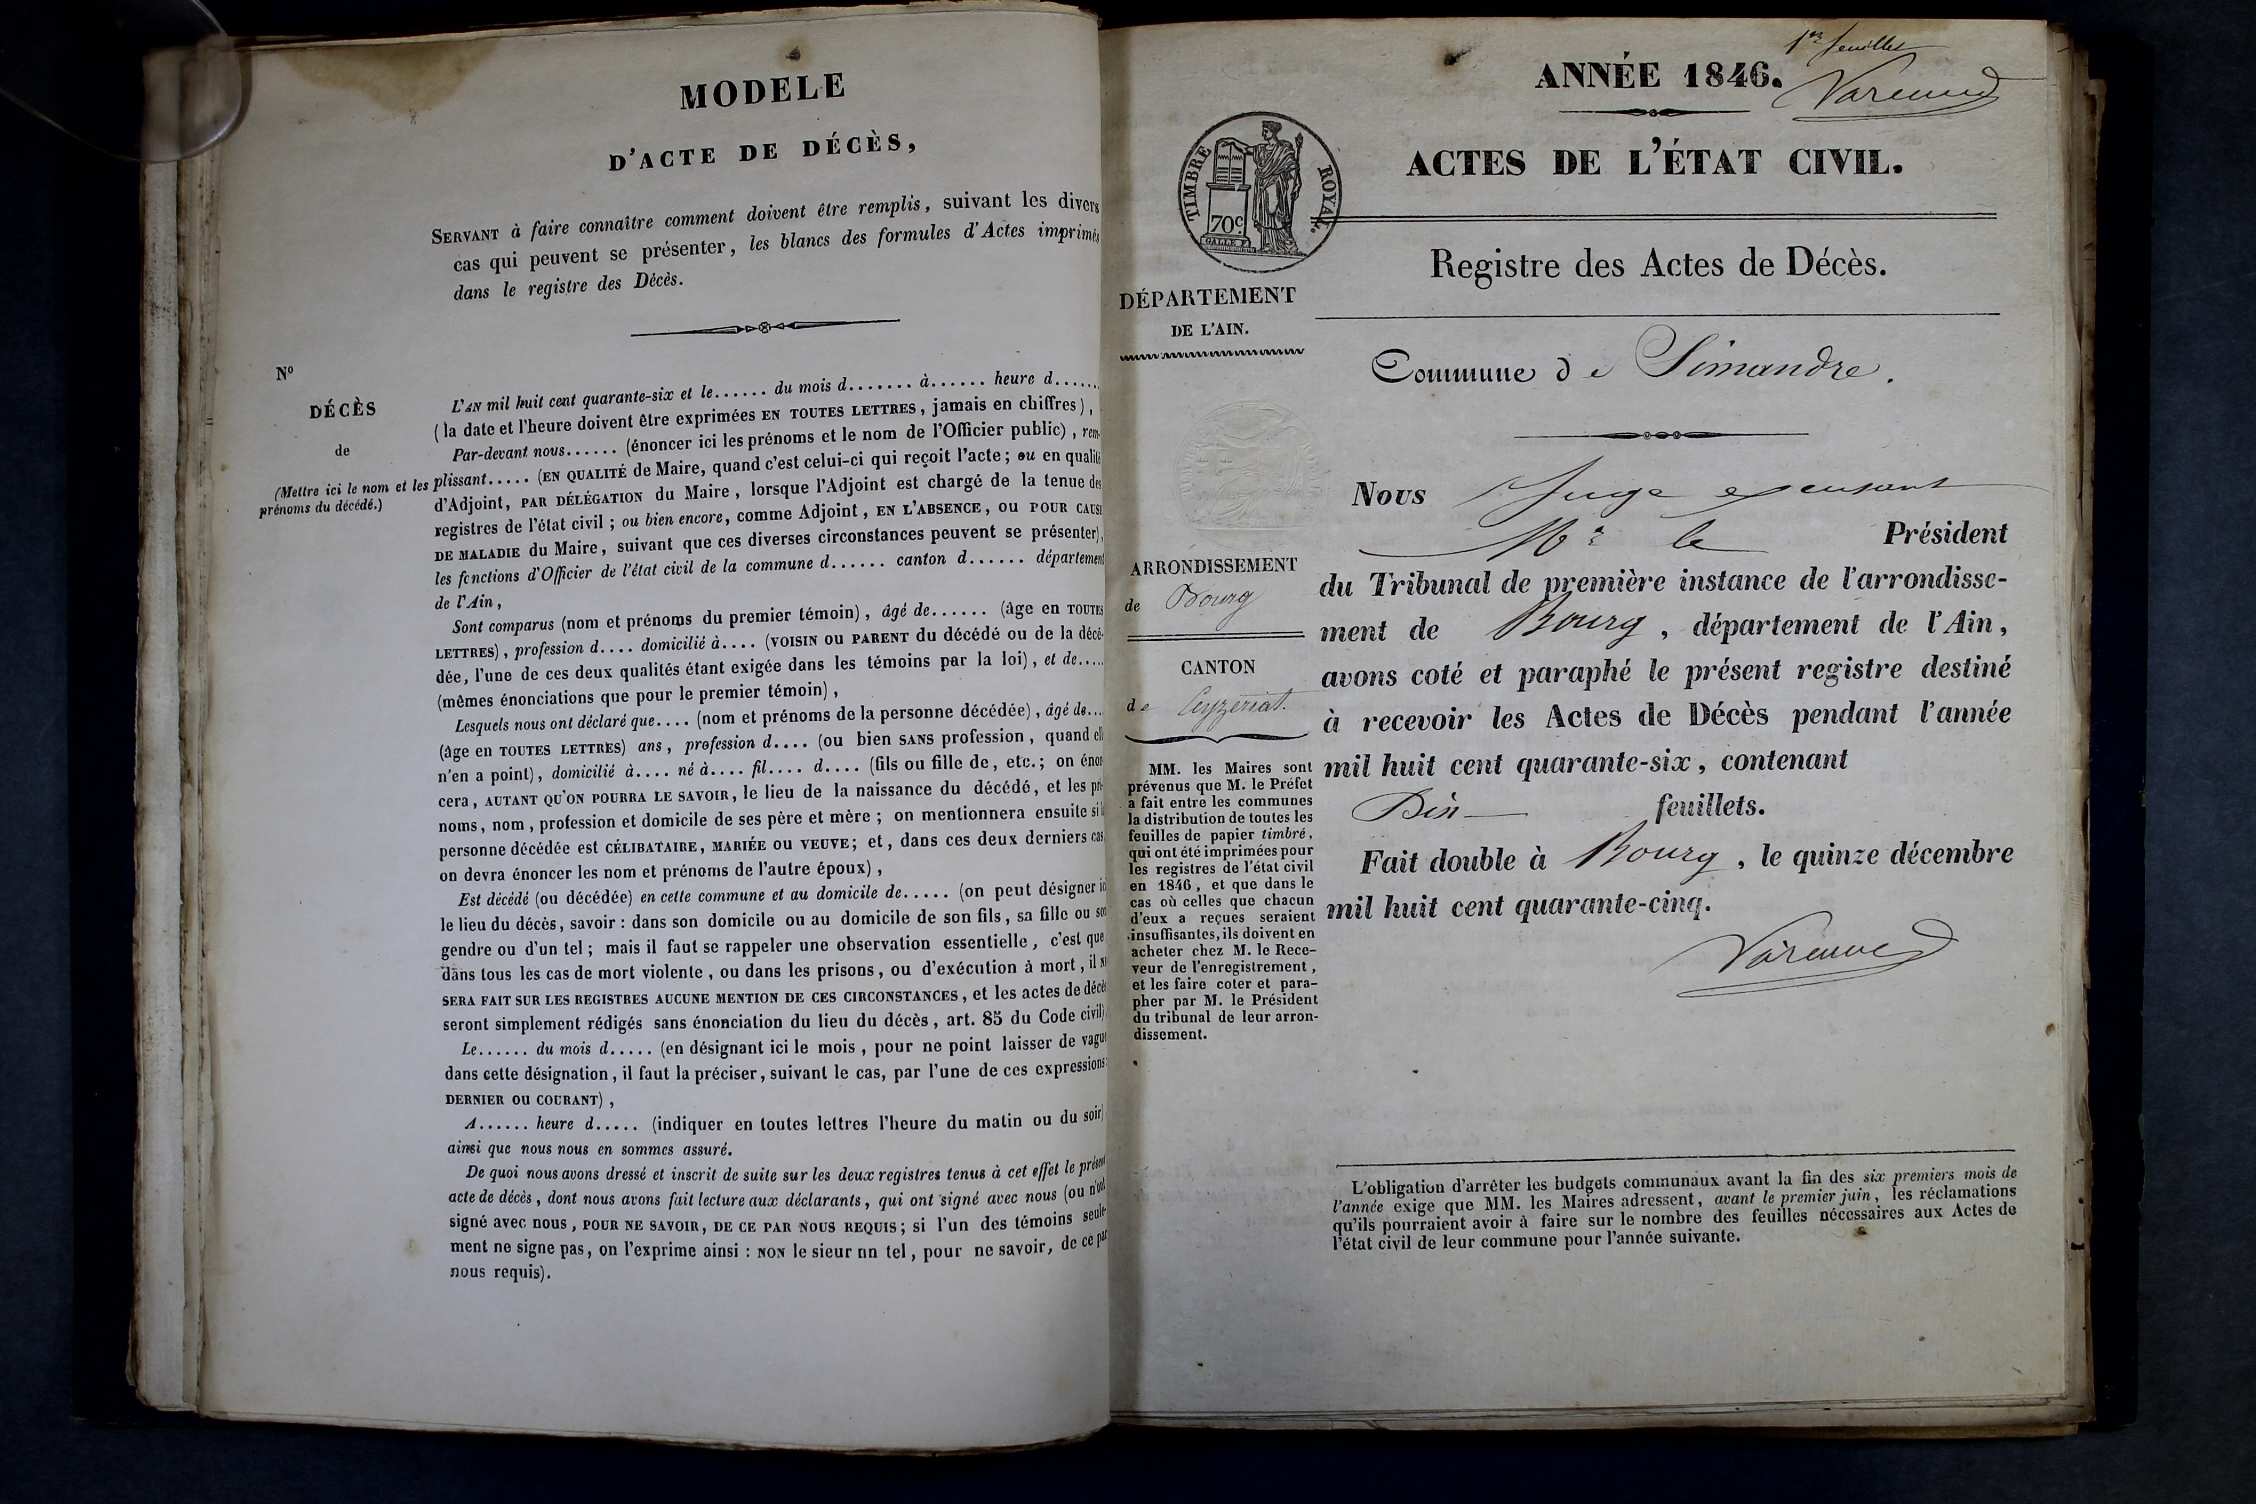 MODELE
D'ACTE DE DÉCÈS,
SERVANT à faire connaître comment doivent être remplis, suivant les divers
cas qui peuvent se présenter, les blancs des formules d'Actes imprimés
dans le registre des Décès.
N°
DÉCÈS
de
(Mettre ici le nom et les
prénoms du décédé.)
L'AN mil huit cent quarante-six et le...... du mois d....... à...... heure d......
(la date et l'heure doivent être exprimées EN TOUTES LETTRES, jamais en chiffres),
Par-devant nous...... (énoncer ici les prénoms et le nom de l'Officier public), rem-
plissant..... (EN QUALITÉ de Maire, quand c'est celui-ci qui reçoit l'acte; ou en qualité
d'Adjoint, PAR DÉLÉGATION du Maire, lorsque l'Adjoint est chargé de la tenue des
registres de l'état civil; ou bien encore, comme Adjoint, EN L'ABSENCE, OU POUR CAUSE
DE MALADIE du Maire, suivant que ces diverses circonstances peuvent se présenter),
les fonctions d'Officier de l'état civil de la commune d...... canton d...... département
de l'Ain,
Sont comparus (nom et prénoms du premier témoin), âgé de...... (âge en TOUTES
LETTRES), profession d.... domicilié à.... (VOISIN OU PARENT du décédé ou de la décé-
dée, l'une de ces deux qualités étant exigée dans les témoins par la loi), et de.....
(mêmes énonciations que pour le premier témoin),
Lesquels nous ont déclaré que.... (nom et prénoms de la personne décédée), âgé de...
(âge en TOUTES LETTRES) ans, profession d.... (ou bien SANS profession, quand elle
n'en a point), domicilié à.... né à.... fil.... d.... (fils ou fille de, etc.; on énon-
cera, AUTANT QU'ON POURRA LE SAVOIR, le lieu de la naissance du décédé, et les pré-
noms, nom, profession et domicile de ses père et mère; on mentionnera ensuite si la
personne décédée est CÉLIBATAIRE, MARIÉE OU VEUVE; et, dans ces deux derniers cas,
on devra énoncer les nom et prénoms de l'autre époux),
Est décédé (ou décédée) en cette commune et au domicile de..... (on peut désigner ici
le lieu du décès, savoir: dans son domicile ou au domicile de son fils, sa fille ou son
gendre ou d'un tel; mais il faut se rappeler une observation essentielle, c'est que
dans tous les cas de mort violente, ou dans les prisons, ou d'exécution à mort, il ne
SERA FAIT SUR LES REGISTRES AUCUNE MENTION DE CES CIRCONSTANCES, et les actes de décès
seront simplement rédigés sans énonciation du lieu du décès, art. 85 du Code civil)
Le...... du mois d..... (en désignant ici le mois, pour ne point laisser de vague
dans cette désignation, il faut la préciser, suivant le cas, par l'une de ces expressions:
DERNIER OU COURANT),
A...... heure d..... (indiquer en toutes lettres l'heure du matin ou du soir)
ainsi que nous nous en sommes assuré.
De quoi nous avons dressé et inscrit de suite sur les deux registres tenus à cet effet le présent
acte de décès, dont nous avons fait lecture aux déclarants, qui ont signé avec nous (ou n'ont
signé avec nous, POUR NE SAVOIR, DE CE PAR NOUS REQUIS; si l'un des témoins seule-
ment ne signe pas, on l'exprime ainsi: NON le sieur un tel, pour ne savoir, de ce par
nous requis).
1er feuillet
ANNÉE 1846.
ACTES DE L'ÉTAT CIVIL.
TIMBRE ROYAL.
70c
Registre des Actes de Décès.
DÉPARTEMENT
DE L'AIN.
Commune de Simandre.
ARRONDISSEMENT
de Bourg
CANTON
de Ceyzériat.
MM. les Maires sont
prévenus que M. le Préfet
a fait entre les communes
la distribution de toutes les
feuilles de papier timbré,
qui ont été imprimées pour
les registres de l'état civil
en 1846, et que dans le
cas où celles que chacun
d'eux a reçues seraient
insuffisantes, ils doivent en
acheter chez M. le Rece-
veur de l'enregistrement,
et les faire coter et para-
pher par M. le Président
du tribunal de leur arron-
dissement.
Nous Juge
Mr le Président
du Tribunal de première instance de l'arrondisse-
ment de Bourg, département de l'Ain,
avons coté et paraphé le présent registre destiné
à recevoir les Actes de Décès pendant l'année
mil huit cent quarante-six, contenant
Dix feuillets.
Fait double à Bourg, le quinze décembre
mil huit cent quarante-cinq.
L'obligation d'arrêter les budgets communaux avant la fin des six premiers mois de
l'année exige que MM. les Maires adressent, avant le premier juin, les réclamations
qu'ils pourraient avoir à faire sur le nombre des feuilles nécessaires aux Actes de
l'état civil de leur commune pour l'année suivante.